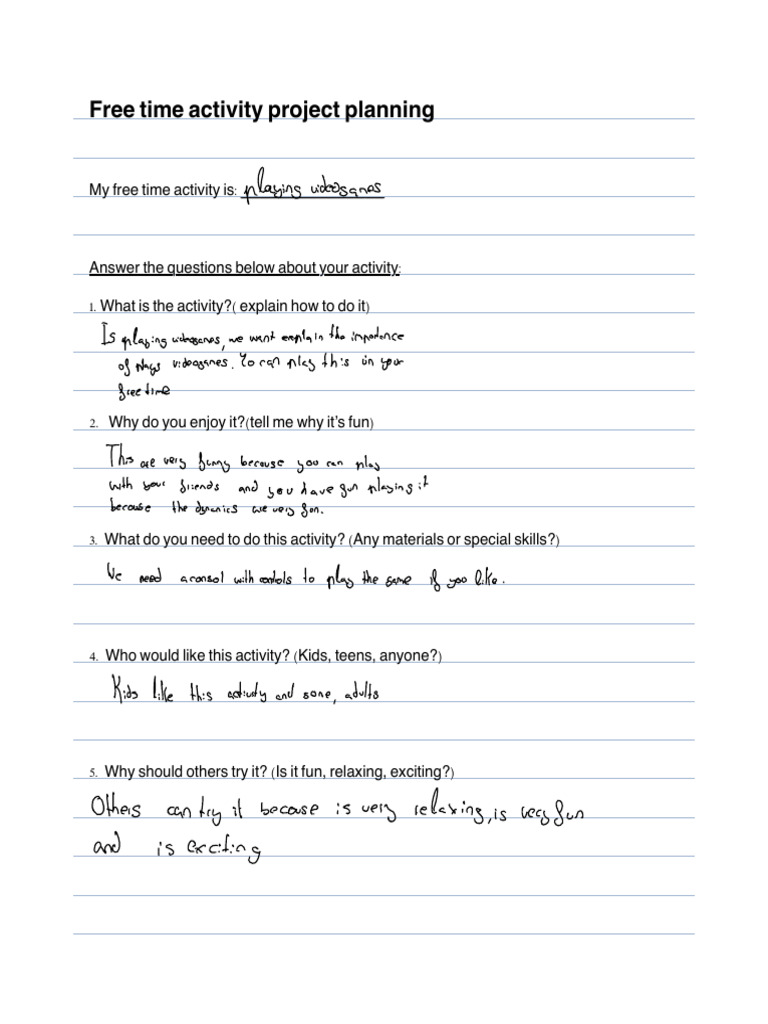 Free time activity project planning
My free time activity is: playing videogames
Answer the questions below about your activity:
1. What is the activity?( explain how to do it)
Is playing videogames, we want explain the impordence
of plays videogames. Yo can play this in your
free time
2. Why do you enjoy it?(tell me why it's fun)
This are very funny because you can play
with your friends and you have fun playing it
because the dynamics we very fun.
3. What do you need to do this activity? (Any materials or special skills?)
We need a consol with contols to play the game if you like.
4. Who would like this activity? (Kids, teens, anyone?)
Kids like this activity and some, adults
5. Why should others try it? (Is it fun, relaxing, exciting?)
Others can try it because is very relaxing, is very fun
and is exciting